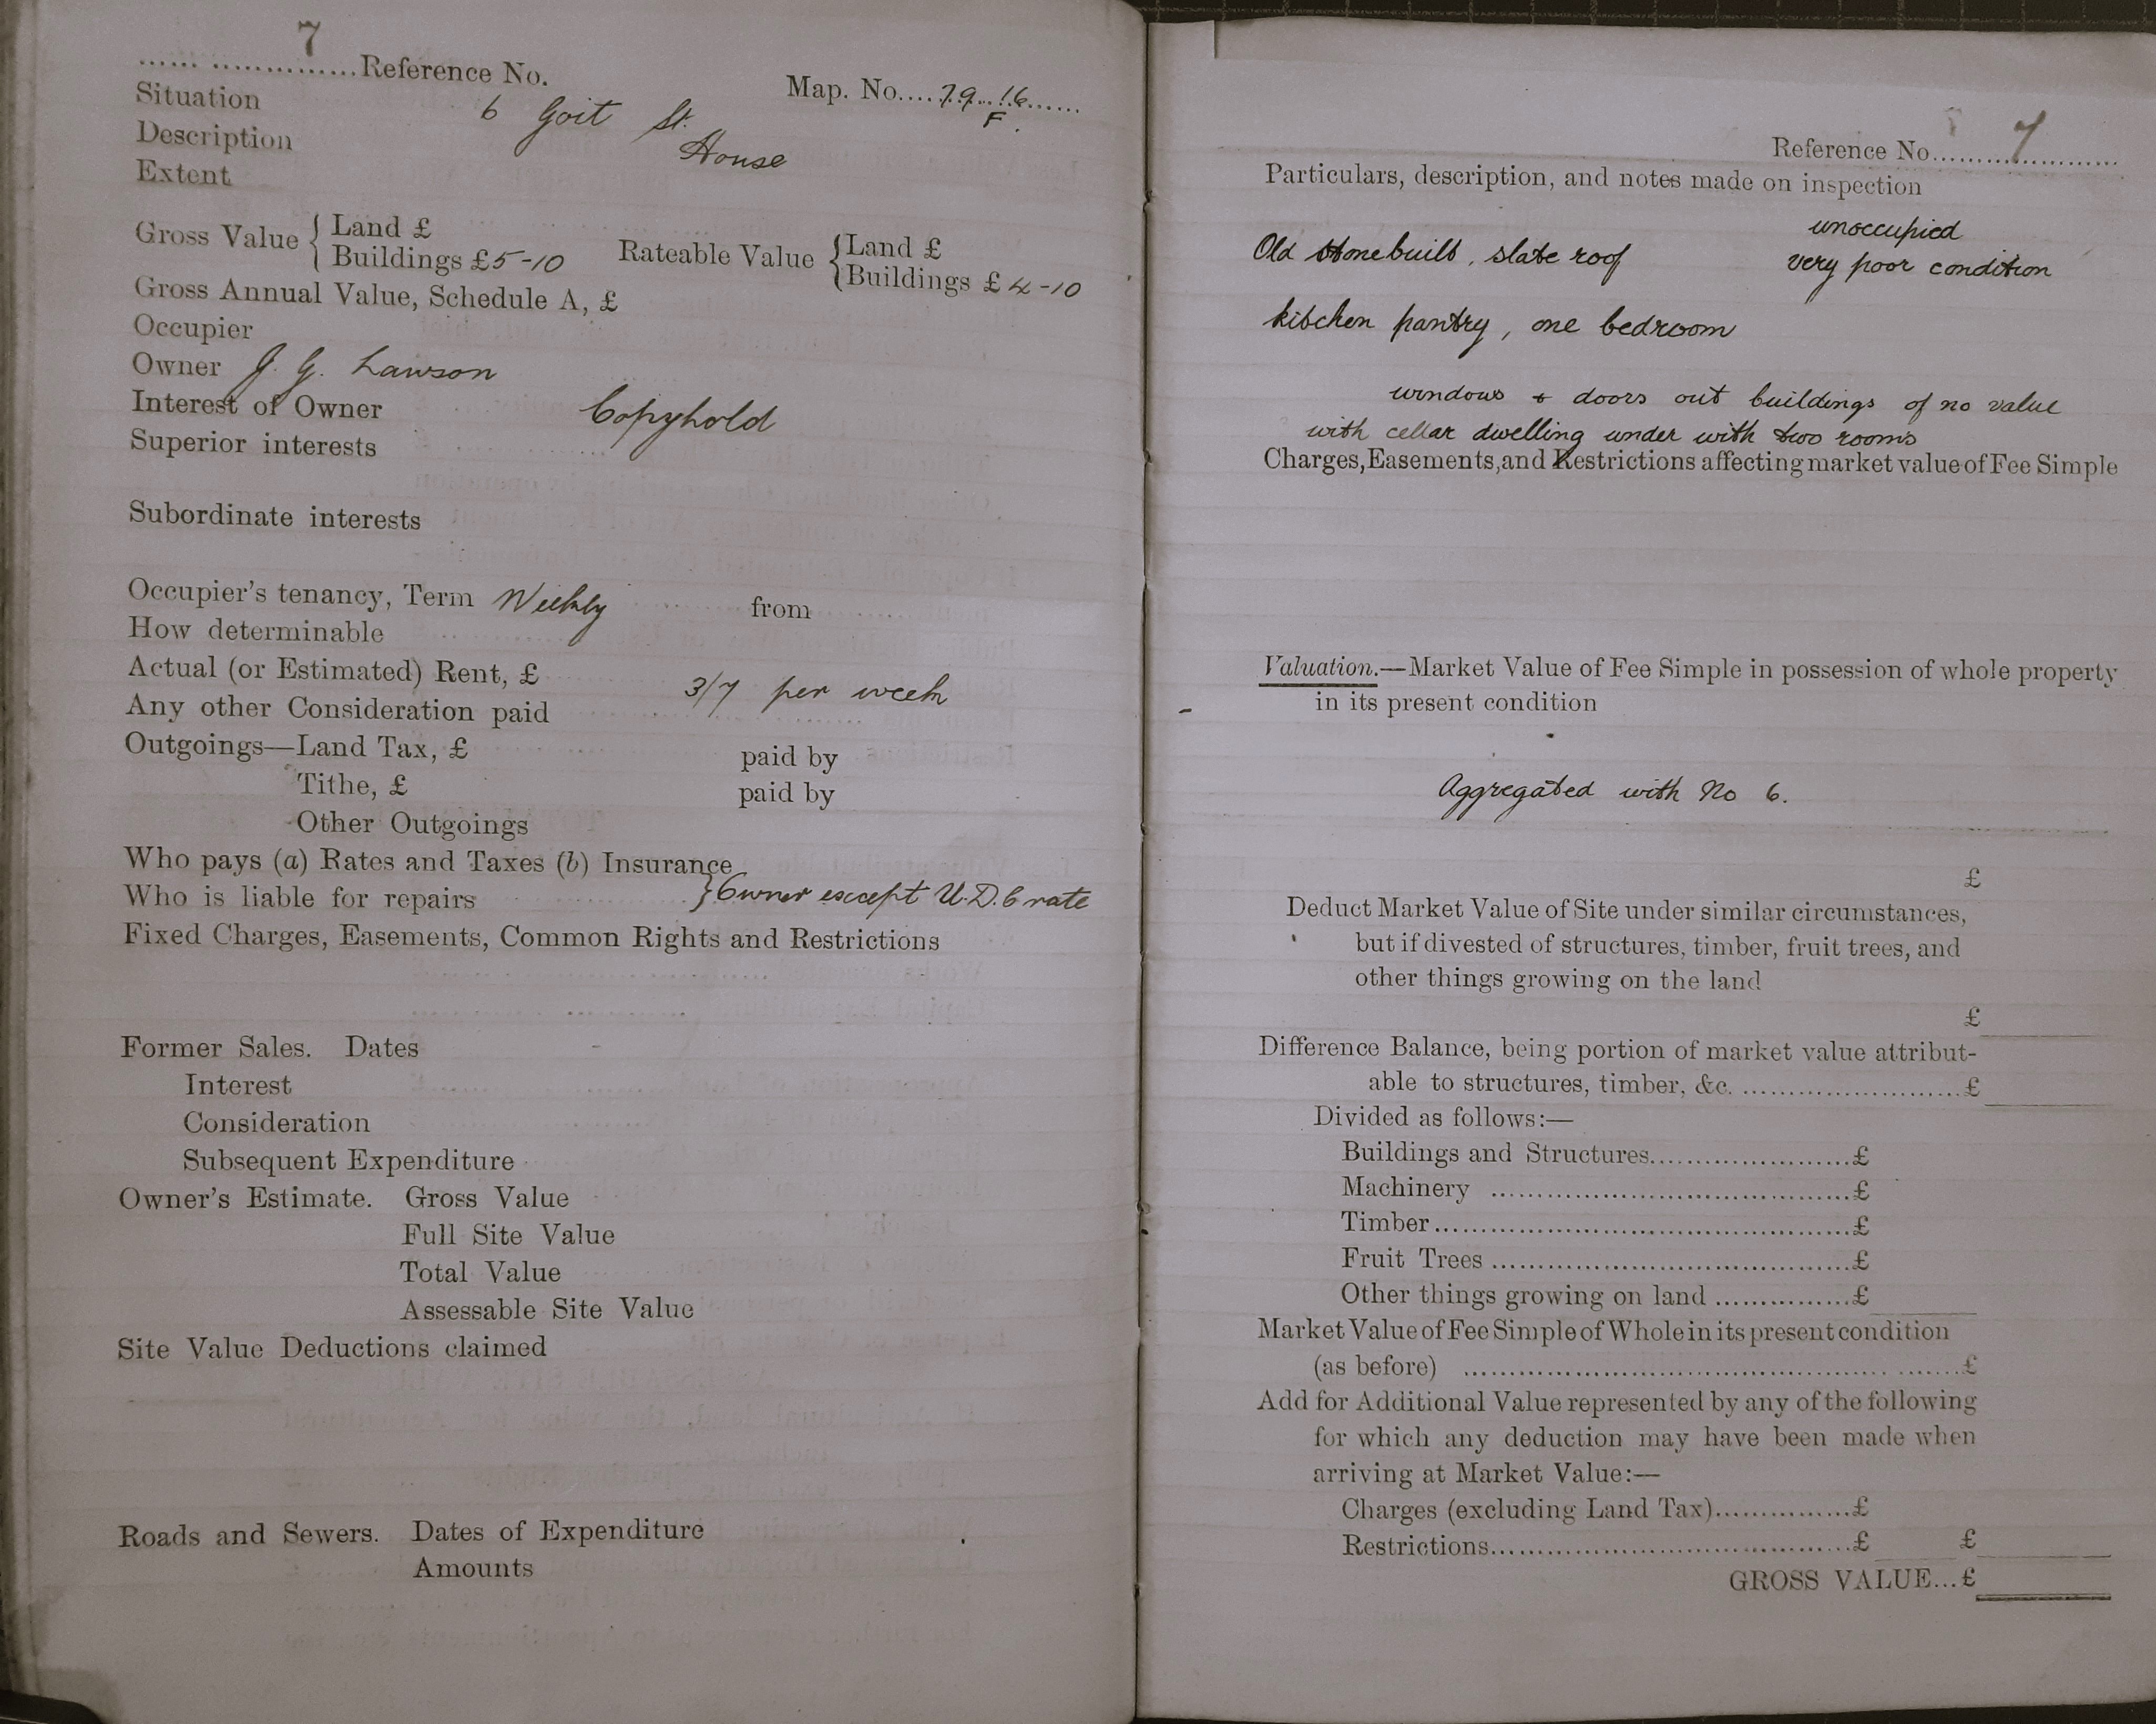 7
.....................Reference No.
Map. No.... 79..16......
F.
Situation 6 Goit St.
Description House
Extent
Gross Value { Land £
Buildings £5-10
Rateable Value { Land £
Buildings £4-10
Gross Annual Value, Schedule A, £
Occupier
Owner J. G. Lawson
Interest of Owner Copyhold
Superior interests
Subordinate interests
Occupier's tenancy, Term Weekly from
How determinable
Actual (or Estimated) Rent, £ 3/7 per week
Any other Consideration paid
Outgoings—Land Tax, £ paid by
Tithe, £ paid by
Other Outgoings
Who pays (a) Rates and Taxes (b) Insurance
Who is liable for repairs } Owner except U.D.C rate
Fixed Charges, Easements, Common Rights and Restrictions
Former Sales. Dates
Interest
Consideration
Subsequent Expenditure
Owner's Estimate. Gross Value
Full Site Value
Total Value
Assessable Site Value
Site Value Deductions claimed
Roads and Sewers. Dates of Expenditure
Amounts
Reference No. 7
Particulars, description, and notes made on inspection
unoccupied
Old stonebuilt, slate roof very poor condition
kitchen pantry, one bedroom
windows + doors out buildings of no value
with cellar dwelling under with two rooms
Charges, Easements, and Restrictions affecting market value of Fee Simple
Valuation.—Market Value of Fee Simple in possession of whole property
in its present condition
Aggregated with No 6.
£
Deduct Market Value of Site under similar circumstances,
but if divested of structures, timber, fruit trees, and
other things growing on the land
£
Difference Balance, being portion of market value attribut-
able to structures, timber, &c. ........................£
Divided as follows:—
Buildings and Structures.......................£
Machinery .........................................£
Timber...............................................£
Fruit Trees .........................................£
Other things growing on land ...............£
Market Value of Fee Simple of Whole in its present condition
(as before) ..................................................£
Add for Additional Value represented by any of the following
for which any deduction may have been made when
arriving at Market Value:—
Charges (excluding Land Tax)...............£
Restrictions..........................................£ £
GROSS VALUE...£